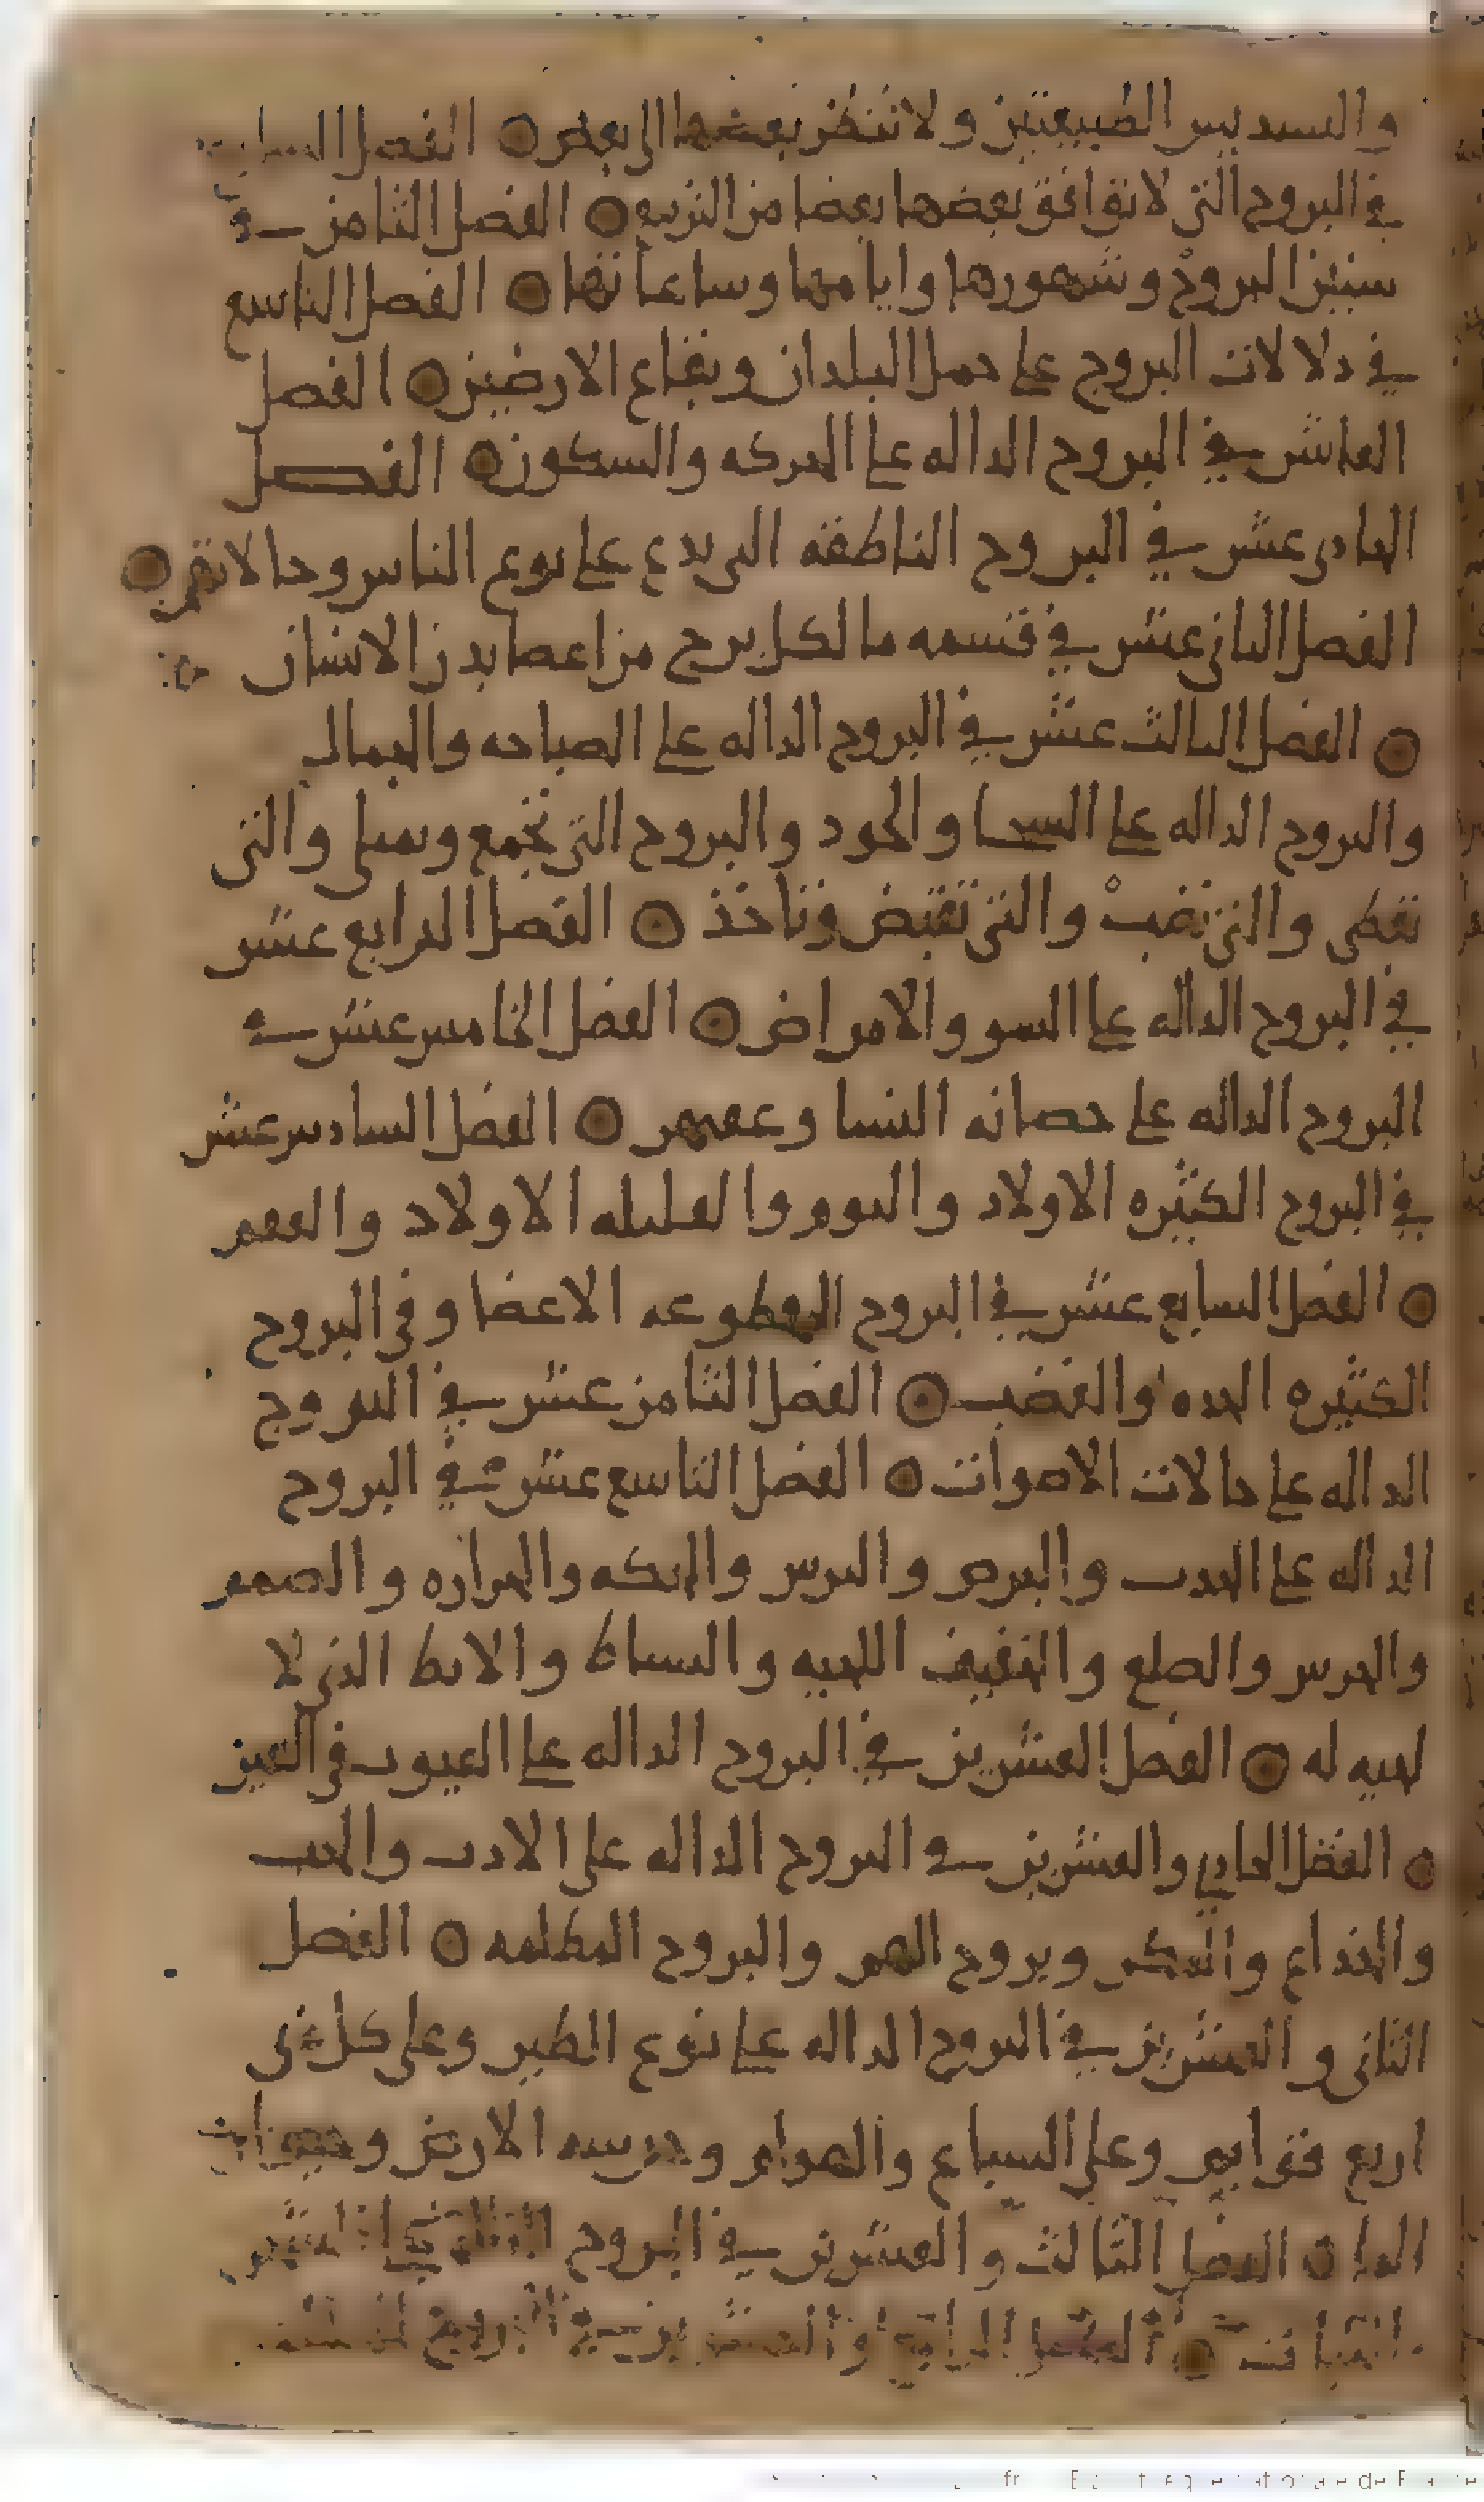 والتسديس الطبيعيتين ولا تنظر بعضها الى بعض ۝ الفصل السابع
في البروج التي لا توافق بعضها بعضا من التربيع ۝ الفصل الثامن في
سنين البروج وشهورها وايامها وساعاتها ۝ الفصل التاسع
في دلالات البروج على حمل البلدان وبقاع الارضين ۝ الفصل
العاشر في البروج الداله على الحركه والسكون ۝ الفصل
الحادى عشر في البروج الناطقه التي تدع على نوع الناس وحالاتهم ۝
الفصل الثاني عشر في قسمه ما لكل برج من اعضا بدن الانسان
۝ الفصل الثالث عشر في البروج الداله على الصباحه والجمال
والبروج الداله على السخا والجود والبروج التي تجمع وتمسك والتي
تعطى والتي تغب والتي تقبض وتاخذ ۝ الفصل الرابع عشر
في البروج الداله على السو والامراض ۝ الفصل الخامس عشر في
البروج الداله على حصانه النسا وعفتهم ۝ الفصل السادس عشر
في البروج الكثيره الاولاد والتووم والقليله الاولاد والعقم
۝ الفصل السابع عشر في البروج المقطوعه الاعضا وفي البروج
الكثيره الحده والغضب ۝ الفصل الثامن عشر في البروج
الداله على حالات الاصوات ۝ الفصل التاسع عشر في البروج
الداله على الجرب والبرص والحكه والحزازه والصمم
والخرس والصلع والخفيف اللحيه والسناط والابط الذي لا
لحيه له ۝ الفصل العشرين في البروج الداله على العيوب في العين
۝ الفصل الحادي والعشرين في البروج الداله على الادب
والخداع والمكر وبروج الهم والبروج المظلمه ۝ الفصل
الثاني والعشرين في البروج الداله على نوع الطير وعلى كل ذي
اربع قوايم وعلى السباع والهوام وحرسه الارض وحيوانات
الما ۝ الفصل الثالث والعشرين في البروج الداله على الشجر
والنبات ۝ الفصل الرابع والعشرين في البروج